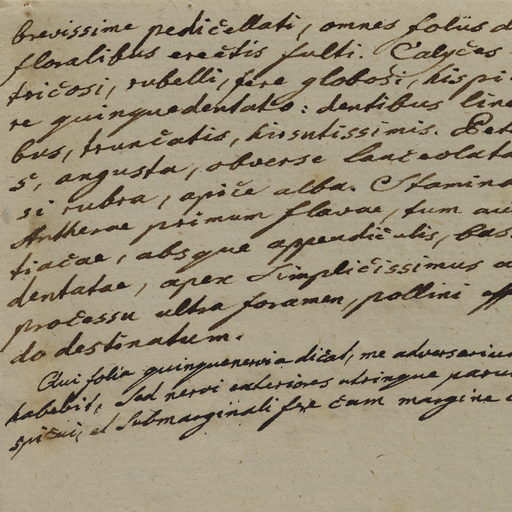 brevissime pedicellati, omnes foliis d
floralibus erectis fulti. Calyces
tricosi, rubelli, fere globosi, hispi
re quinquedentato: dentibus line
bus, truncatis, hirsutissimis. Pet
s, angusta, obverse lanceolata
si rubra, apice alba. Stamina
Antherae primum flavae, tum au
tiacae, absque appendiculis, bas
dentatae, apex simplicissimus a
processu ultra foramen, pollini eff
do destinatum.
Qui folia quinquenervia dicat, me adversarium
habebit, sed nervi exteriores utrinque parum
spicui, et submarginali fere cum margine c